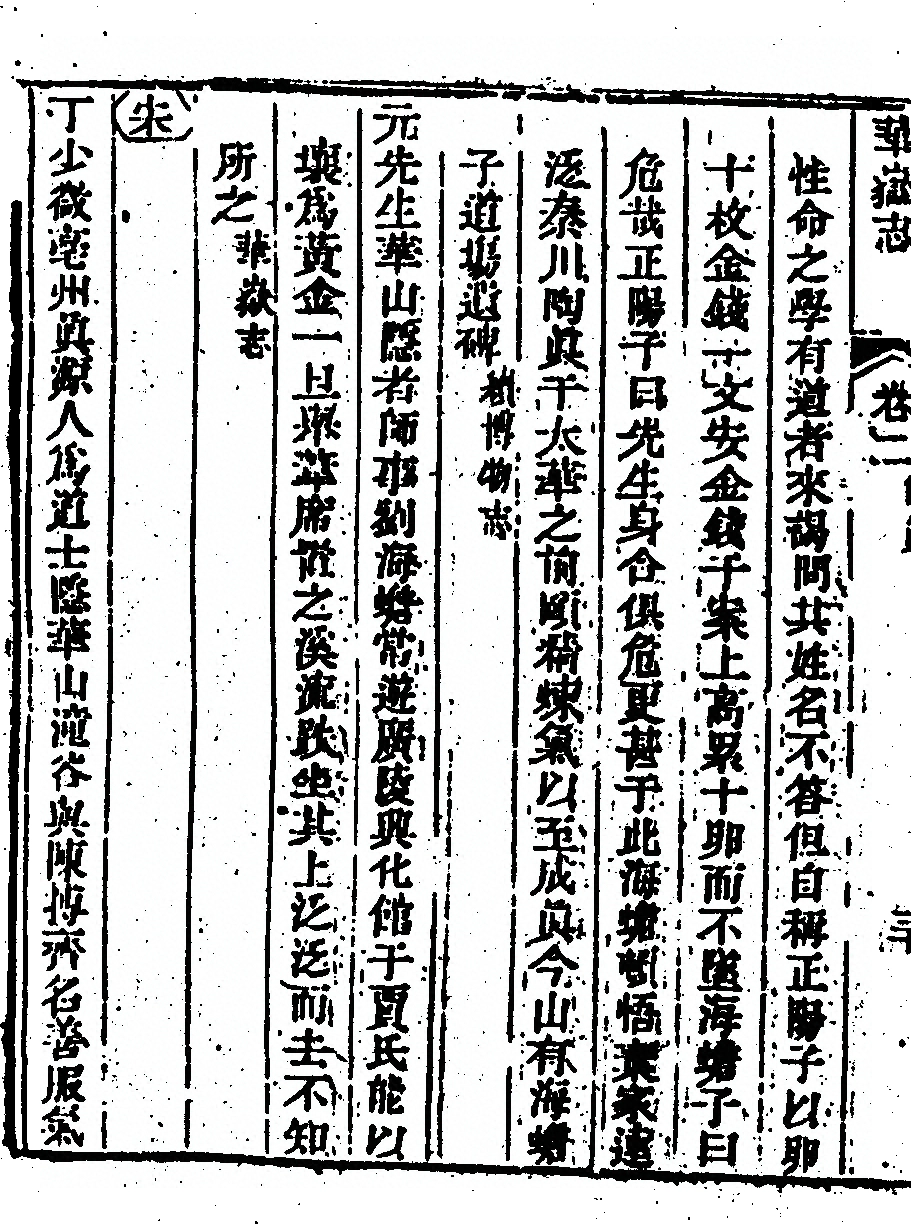 華嶽志 卷二
性命之學有道者來謁問其姓名不答但自稱正陽子以卵
十枚金錢十文安金錢于案上高累十卵而不墜海蟾子曰
危哉正陽子曰先生身命俱危更甚于此海蟾頓悟棄家遠
泛秦川陶眞于太華之前頤精煉氣以至成眞今山有海蟾
子道場遺碑 續博物志
元先生華山隱者師事劉海蟾常遊廣陵興化館于賈氏能以
壤爲黃金一旦聚葦席擲之溪流趺坐其上泛泛而去不知
所之 華嶽志
宋
丁少微亳州眞源人爲道士隱華山潼谷與陳摶齊名善服氣